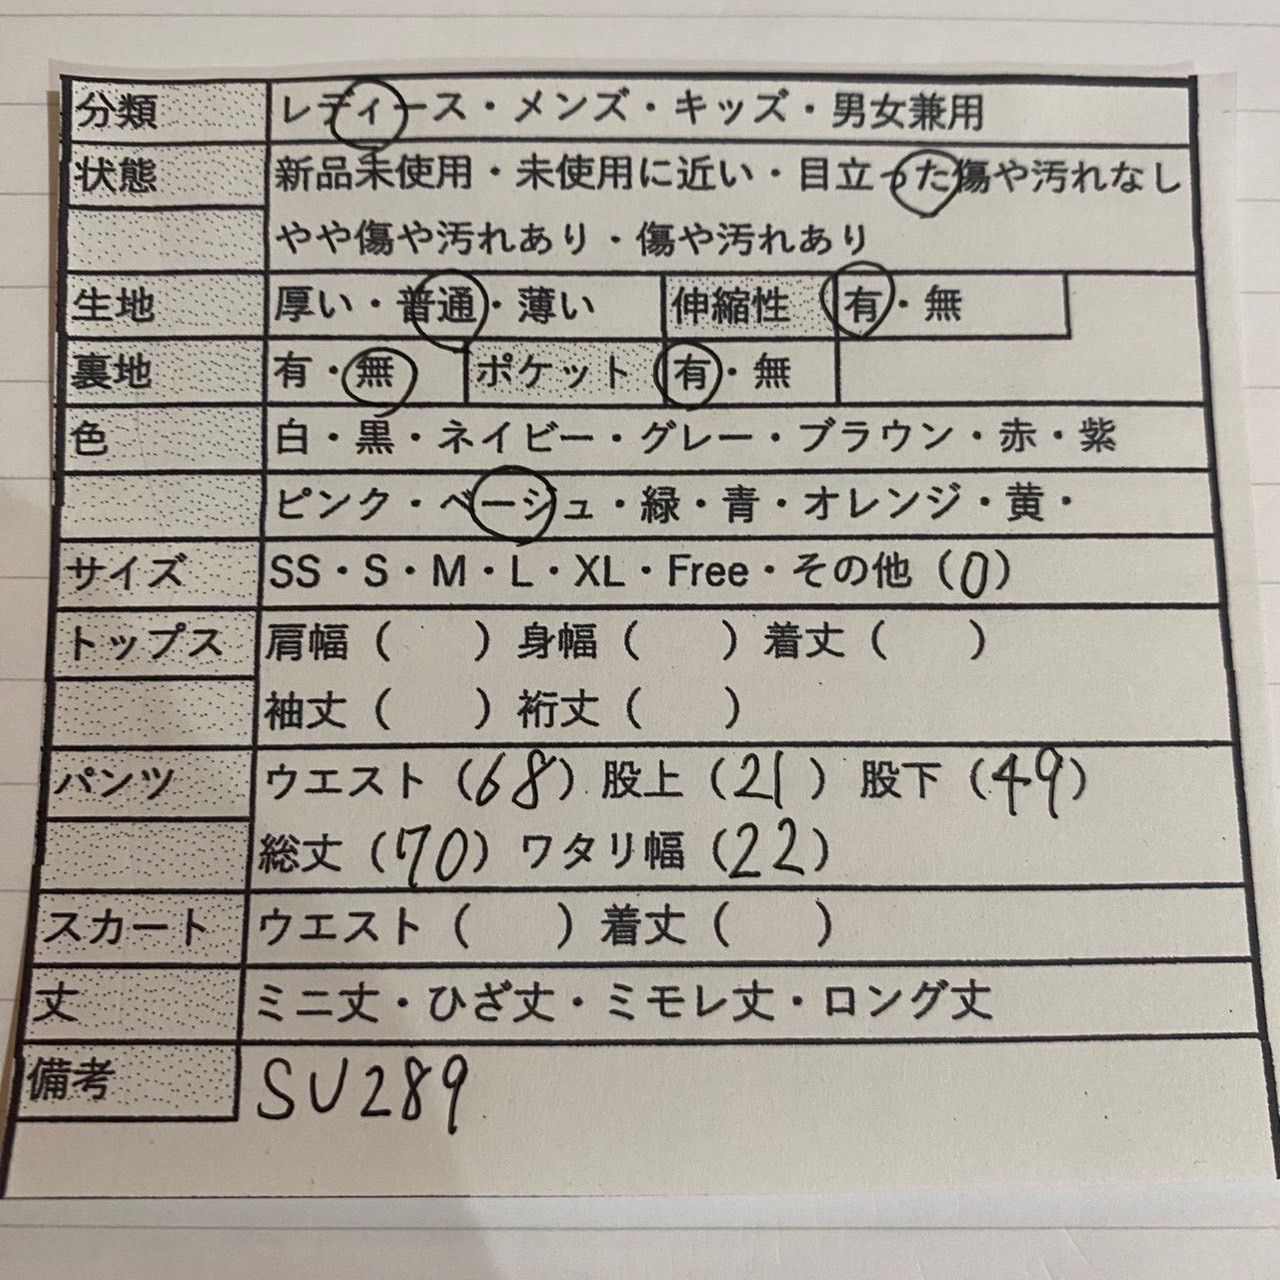 分類 レディース・メンズ・キッズ・男女兼用
状態 新品未使用・未使用に近い・目立った傷や汚れなし
やや傷や汚れあり・傷や汚れあり
生地 厚い・普通・薄い 伸縮性 有・無
裏地 有・無 ポケット 有・無
色 白・黒・ネイビー・グレー・ブラウン・赤・紫
ピンク・ベージュ・緑・青・オレンジ・黄・
サイズ SS・S・M・L・XL・Free・その他（0）
トップス 肩幅（　）身幅（　）着丈（　）
袖丈（　）裄丈（　）
パンツ ウエスト（68）股上（21）股下（49）
総丈（70）ワタリ幅（22）
スカート ウエスト（　）着丈（　）
丈 ミニ丈・ひざ丈・ミモレ丈・ロング丈
備考 SU289